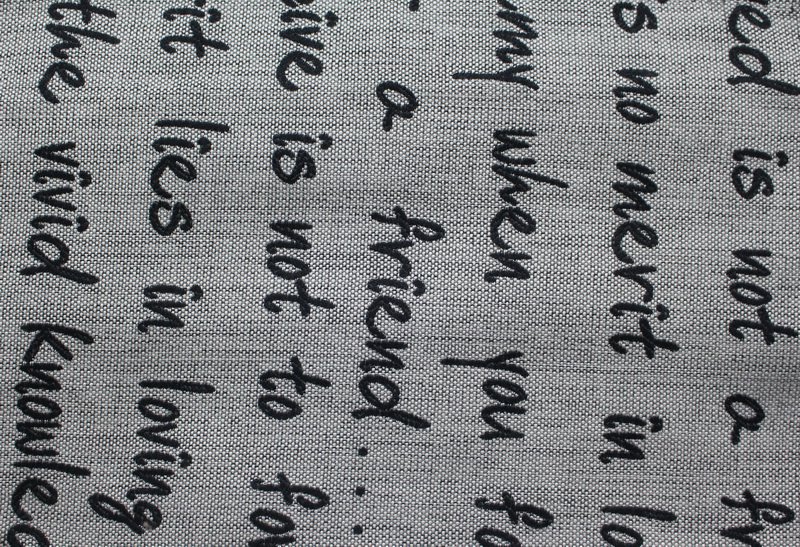 ved is not a fr
s no merit in lo
my when you fo
a friend...
ive is not to for
rit lies in loving
the vivid knowled